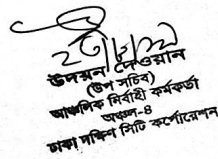 উদয়ন দেওয়ান
(উপ সচিব)
আঞ্চলিক নির্বাহী কর্মকর্তা
অঞ্চল-৪
ঢাকা দক্ষিণ সিটি কর্পোরেশন